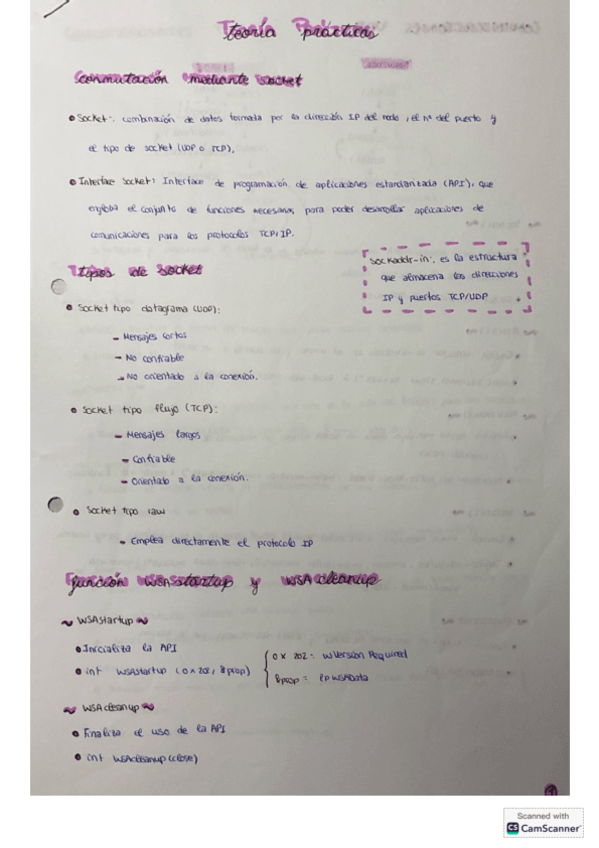 Teoría Prácticas
Conmutación mediante socket
• Socket: combinación de datos formada por la dirección IP del nodo, el nº del puerto y
el tipo de socket (UDP o TCP).
• Interfae Socket: Interface de programación de aplicaciones estandarizada (API), que
engloba el conjunto de funciones necesarias, para poder desarrollar aplicaciones de
comunicaciones para los protocolos TCP/IP.
Sockaddr-in: es la estructura
que almacena las direcciones
IP y puertos TCP/UDP
Tipos de Socket
• Socket tipo datagrama (UDP):
- Mensajes cortos
- No confiable
- No orientado a la conexión.
• Socket tipo flujo (TCP):
- Mensajes largos
- Confiable
- Orientado a la conexión.
• Socket tipo raw
- Emplea directamente el protocolo IP
Función WSAstartup y WSAcleanup
~ WSAstartup ~
• Inicializa la API
• int WSAStartup (0x202, &prop) { 0x202: wVersion Required
&prop = lpWSAData
~ WSAcleanup ~
• Finaliza el uso de la API
• int WSAcleanup (close)
1
Scanned with
CS CamScanner